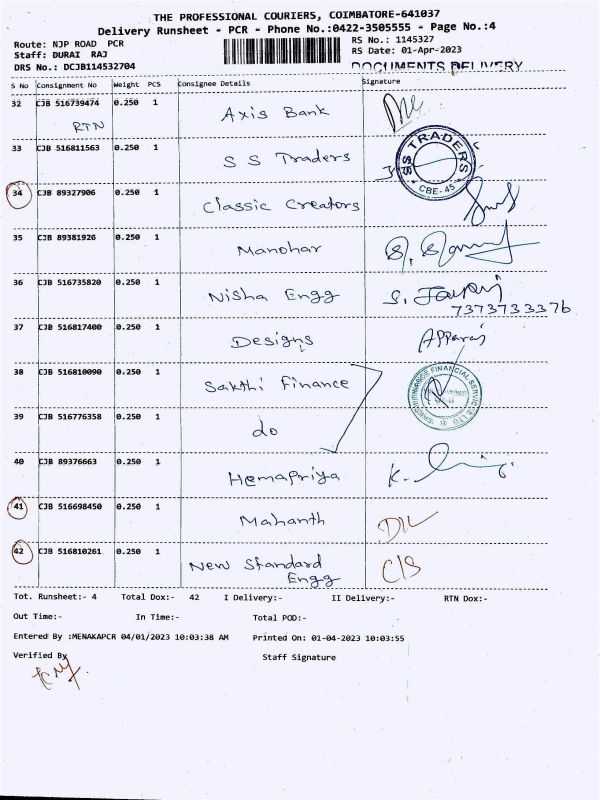 THE PROFESSIONAL COURIERS, COIMBATORE-641037
Delivery Runsheet - PCR - Phone No.:0422-3505555 - Page No.:4
Route: NJP ROAD PCR
RS No.: 1145327
Staff: DURAI RAJ
RS Date: 01-Apr-2023
DRS No.: DCJB114532704
DOCUMENTS DELIVERY
S No Consignment No Weight PCS Consignee Details Signature
32 CJB 516739474 0.250 1 Axis Bank
RTN
33 CJB 516811563 0.250 1 S S Traders
SRS TRADERS
CBE-45
34 CJB 89327906 0.250 1 Classic Creators
35 CJB 89381926 0.250 1 Manohar
36 CJB 516735820 0.250 1 Nisha Engg
7373733376
37 CJB 516817400 0.250 1 Designs
38 CJB 516810090 0.250 1 Sakthi Finance
39 CJB 516776358 0.250 1 do
40 CJB 89376663 0.250 1 Hemapriya
41 CJB 516698450 0.250 1 Mahanth
42 CJB 516810261 0.250 1 New Standard
Engg
C/S
Tot. Runsheet:- 4 Total Dox:- 42 I Delivery:- II Delivery:- RTN Dox:-
Out Time:- In Time:- Total POD:-
Entered By :MENAKAPCR 04/01/2023 10:03:38 AM Printed On: 01-04-2023 10:03:55
Verified By Staff Signature